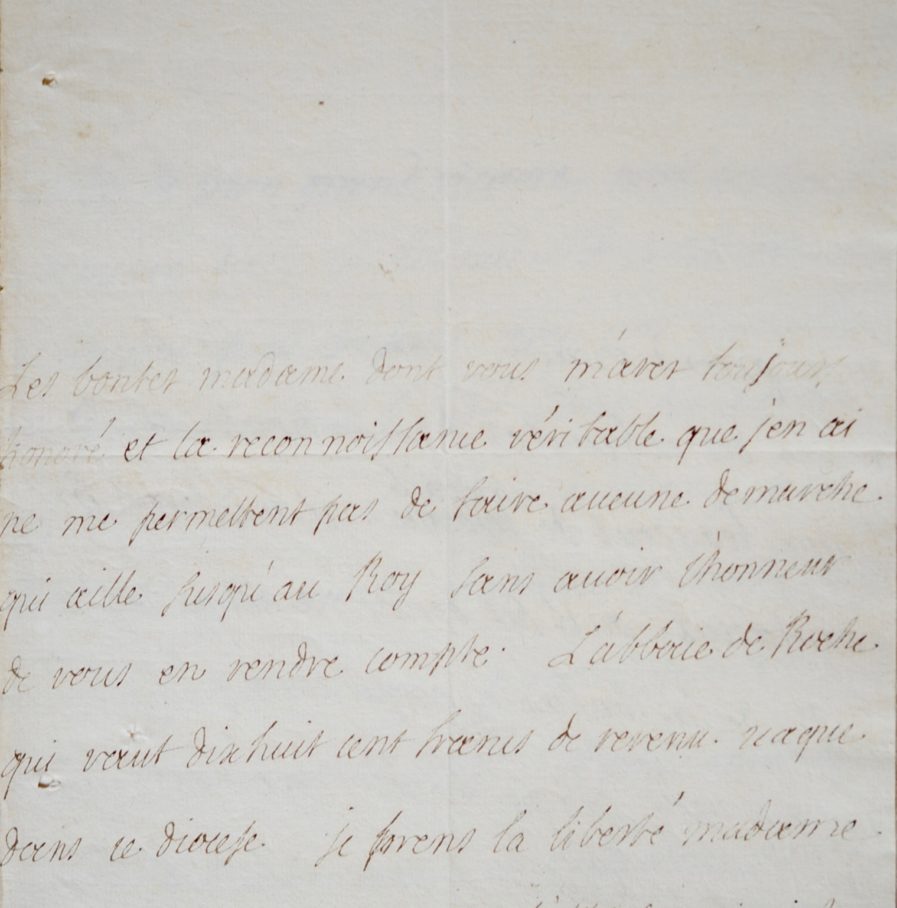 Les bontes madame dont vous m'aves toujours
honoré et la reconnoissance véritable que j'en ai
ne me permettent pas de faire aucune demarche
qui aille jusqu'au Roy sans avoir l'honneur
de vous en rendre compte. L'abbaie de Roche
qui vaut dixhuit cent francs de revenu vaque
dans ce diocese je prens la liberté madame